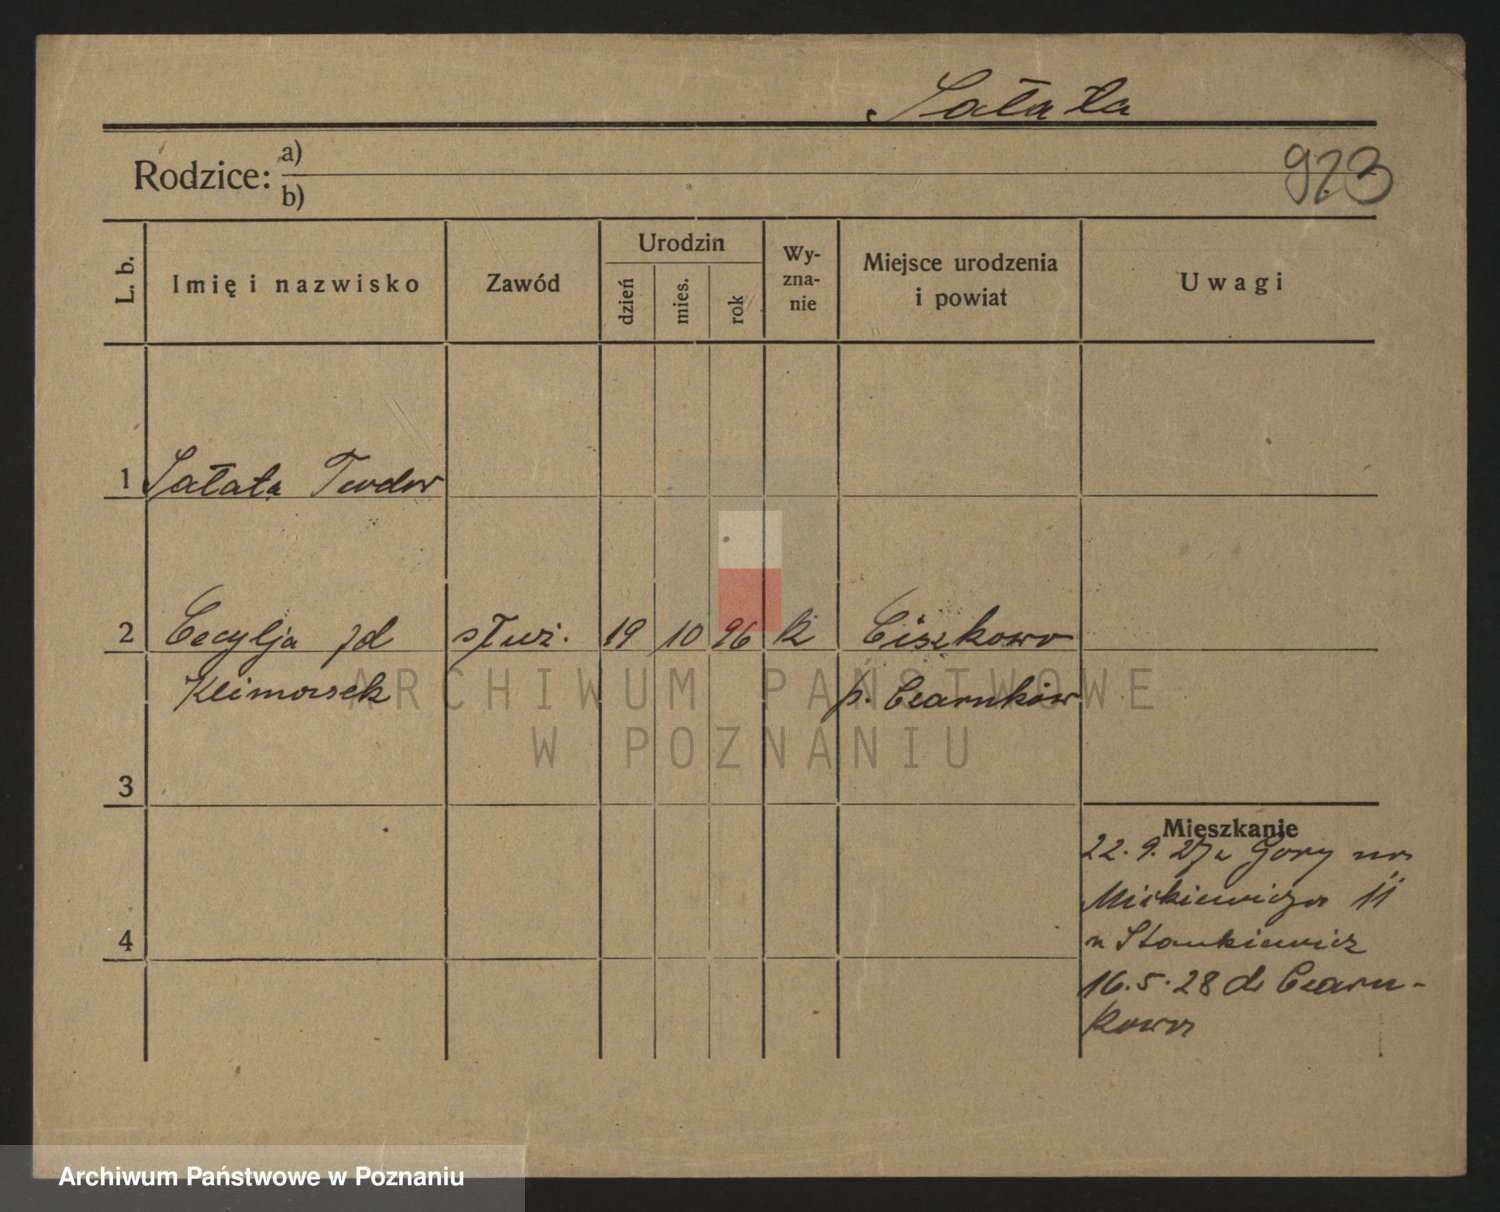 Sałata
Rodzice: a)
b)
923
L. b.
Imię i nazwisko
Zawód
Urodzin
dzień
mies.
rok
Wy-
zna-
nie
Miejsce urodzenia
i powiat
Uwagi
1 Sałata Teodor
2 Cecylja zd służ. 19 10 96 k Ciszkowo
Klimaszek p. Czarnków
3
4
Mieszkanie
22. 9. 27 z Góry na
Mickiewicza 11
u Stankiewicz
16. 5. 28 do Czarn-
kowa
ARCHIWUM PAŃSTWOWE
W POZNANIU
Archiwum Państwowe w Poznaniu